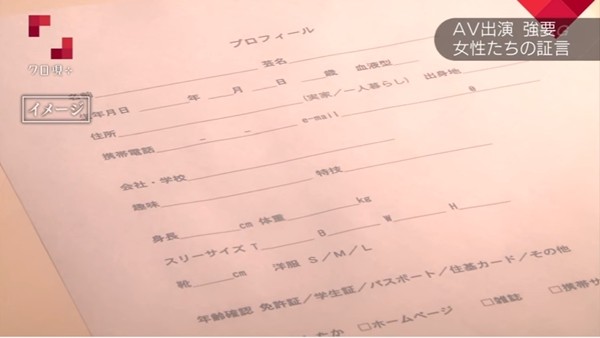 クロ現+
AV出演 強要
女性たちの証言
イメージ
プロフィール
芸名
年月日 年 月 日 歳 血液型
住所 (実家/一人暮らし) 出身地
携帯電話 - - e-mail @
会社・学校
趣味 特技
身長 cm 体重 kg
スリーサイズ T B W H
靴 cm 洋服 S/M/L
年齢確認 免許証/学生証/パスポート/住基カード/その他
たか □ホームページ □雑誌 □携帯サ